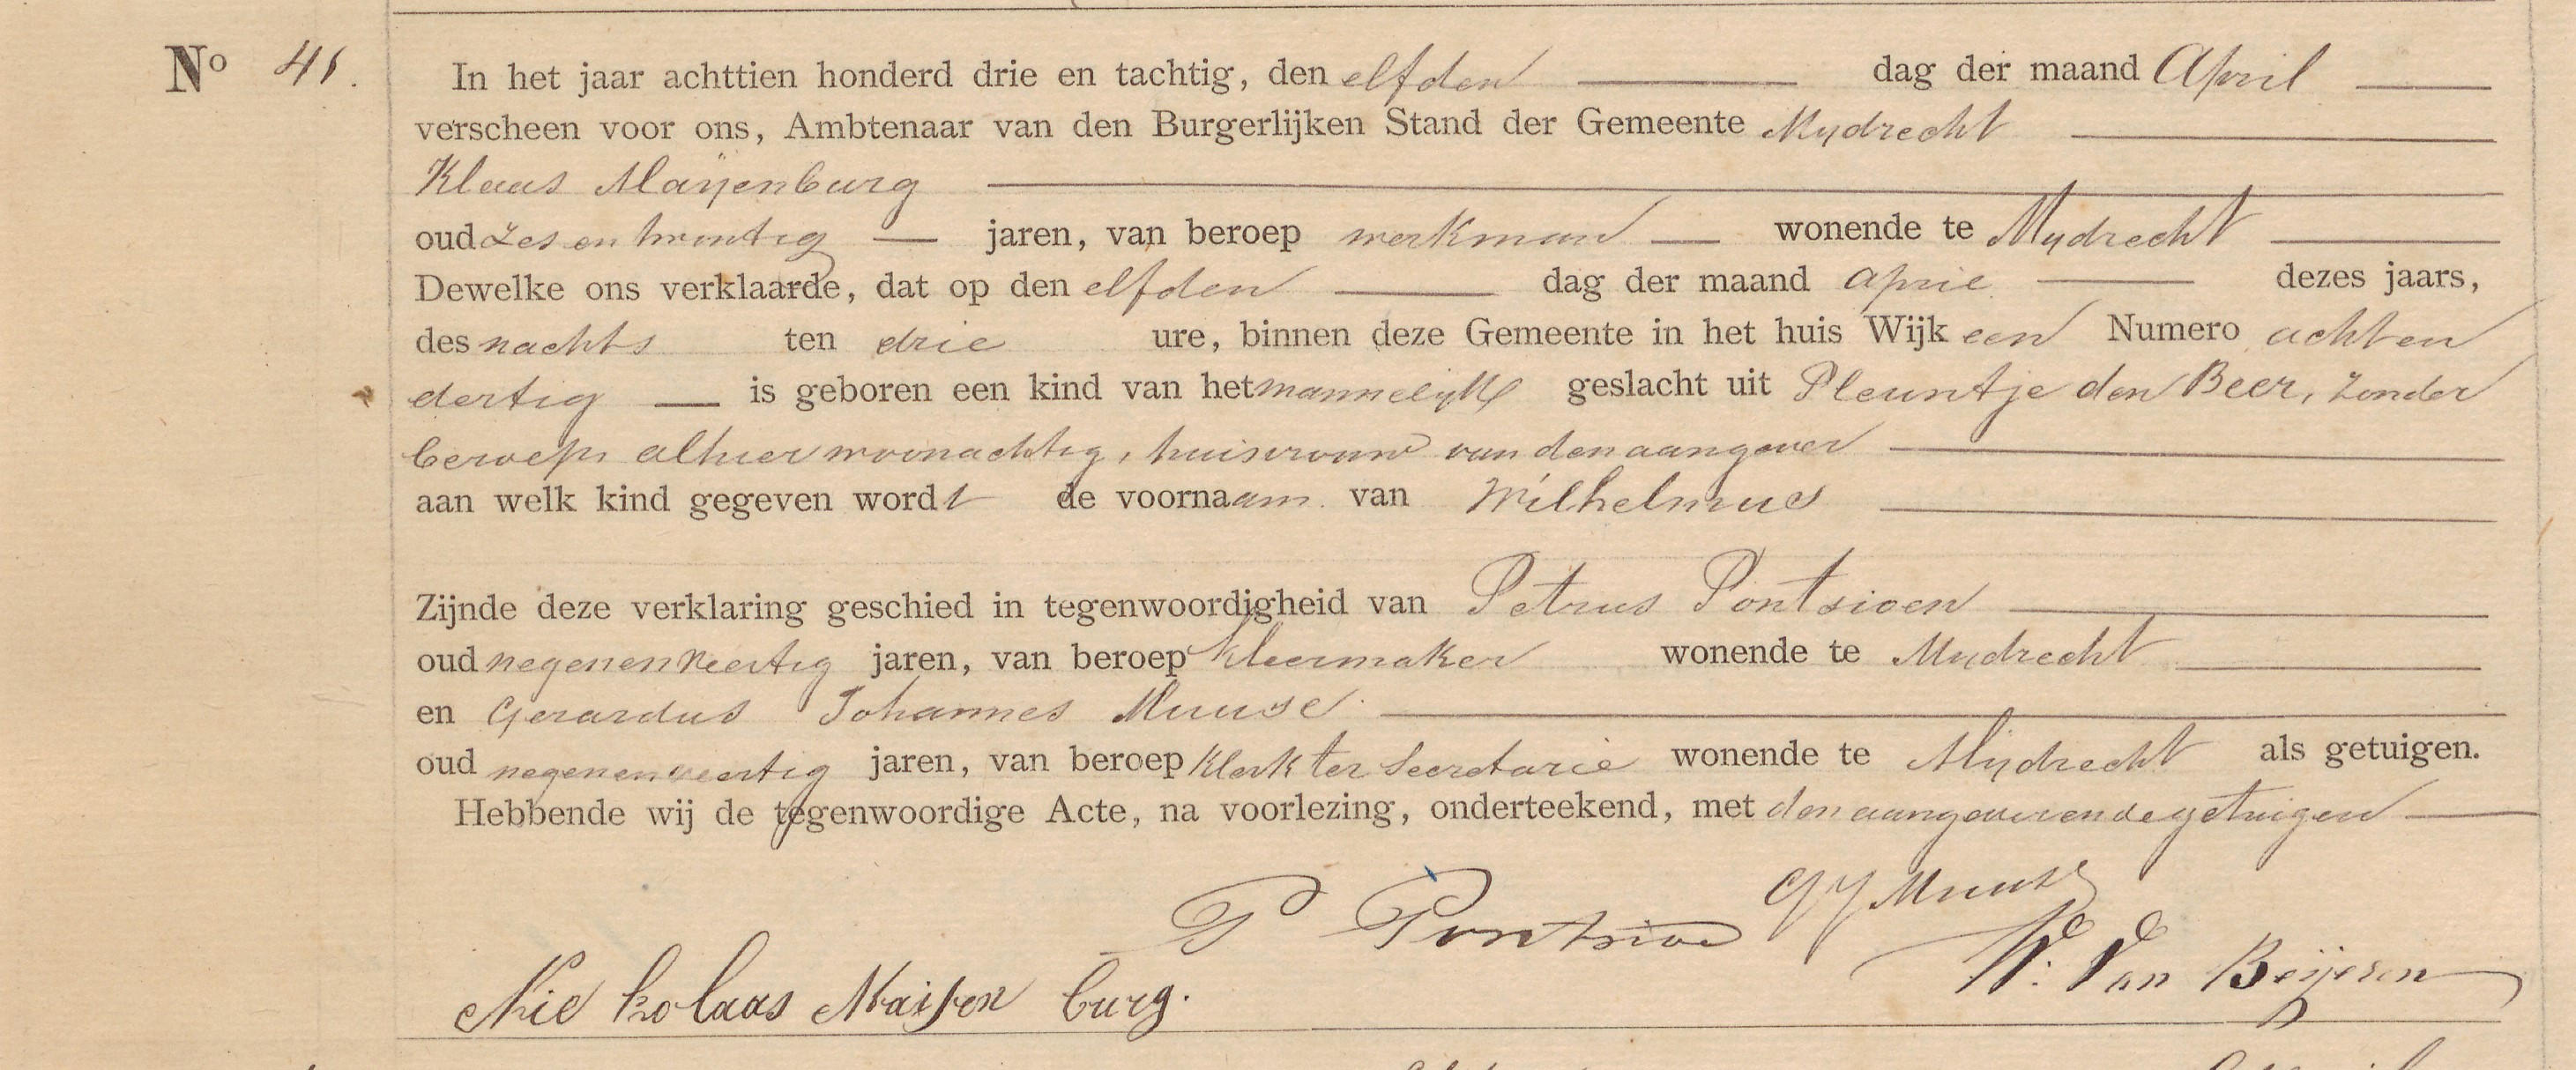 No 41.
In het jaar achttien honderd drie en tachtig, den elfden dag der maand April
verscheen voor ons, Ambtenaar van den Burgerlijken Stand der Gemeente Mydrecht
Klaas Maÿenburg
oud zes en twintig jaren, van beroep werkman wonende te Mydrecht
Dewelke ons verklaarde, dat op den elfden dag der maand April dezes jaars,
des nachts ten drie ure, binnen deze Gemeente in het huis Wijk een Numero achten
dertig is geboren een kind van het mannelijk geslacht uit Pleuntje den Beer, zonder
beroep, alhier woonachtig, huisvrouw van den aangever
aan welk kind gegeven wordt de voornaam van Wilhelmus
Zijnde deze verklaring geschied in tegenwoordigheid van Petrus Pontsioen
oud negenenveertig jaren, van beroep kleermaker wonende te Mydrecht
en Gerardus Johannes Muuse
oud negenenveertig jaren, van beroep klerk ter Secretarie wonende te Mijdrecht als getuigen.
Hebbende wij de tegenwoordige Acte, na voorlezing, onderteekend, met den aangever en de getuigen
P Pontsioen GJ Muuse
Nie kolaas Maijen burg. W. Van Beijeren